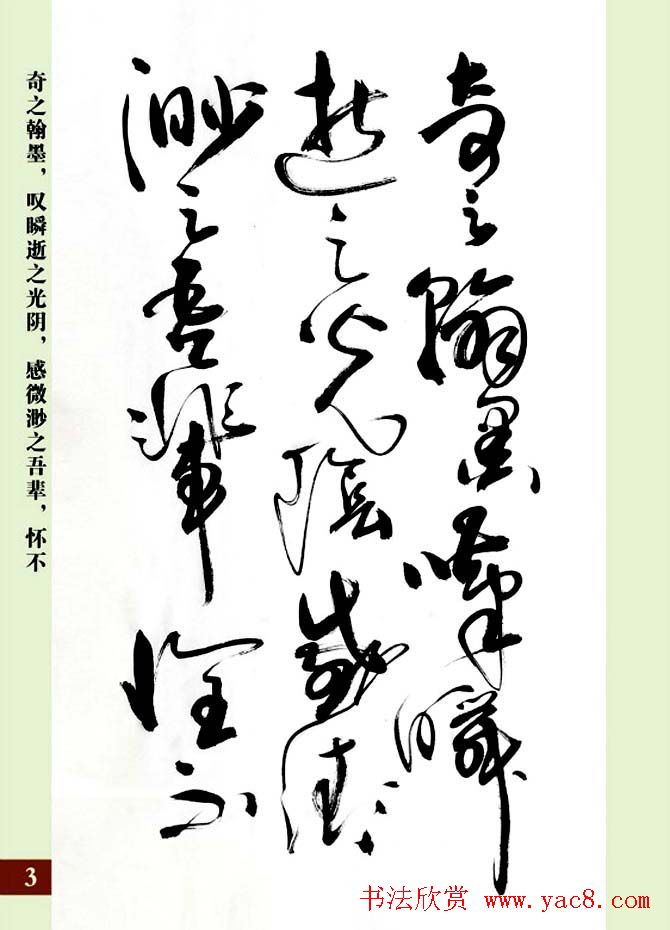 奇之翰墨嘆瞬
逝之光陰感微
渺之吾輩懷不
奇之翰墨，叹瞬逝之光阴，感微渺之吾辈，怀不
3
书法欣赏 www.yac8.com